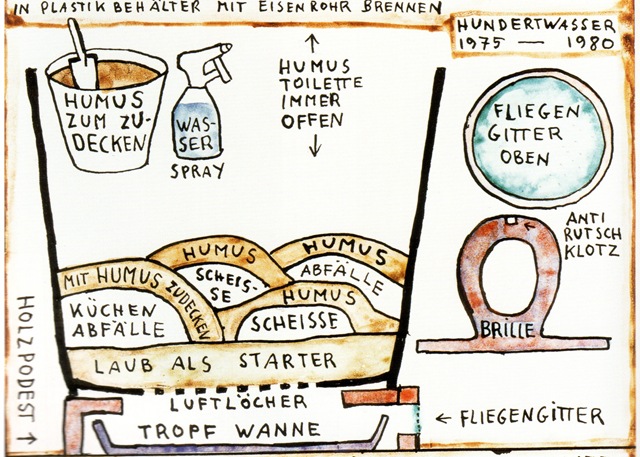 IN PLASTIKBEHÄLTER MIT EISENROHR BRENNEN
HUNDERTWASSER
1975 — 1980
HUMUS
ZUM ZU-
DECKEN
WAS-
SER
SPRAY
↑
HUMUS
TOILETTE
IMMER
OFFEN
↓
FLIEGEN
GITTER
OBEN
ANTI
RUTSCH
KLOTZ
BRILLE
HUMUS
SCHEIS-
SE
HUMUS
ABFÄLLE
MIT HUMUS ZUDECKEN
KÜCHEN
ABFÄLLE
HUMUS
SCHEISSE
LAUB ALS STARTER
LUFTLÖCHER
TROPF WANNE
HOLZPODEST ↑
← FLIEGENGITTER